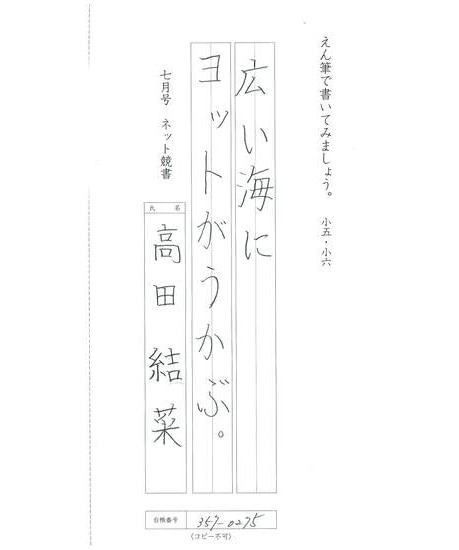 えん筆で書いてみましょう。 小五・小六
広い海に
ヨットがうかぶ。
七月号 ネット競書
氏名
高田結菜
台帳番号 357-0275
(コピー不可)